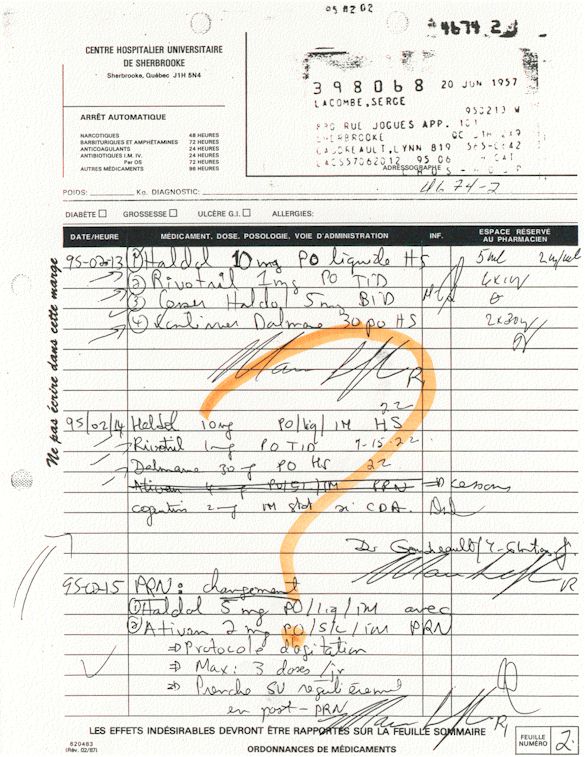 95 02 02
4674 2
CENTRE HOSPITALIER UNIVERSITAIRE
DE SHERBROOKE
Sherbrooke, Québec J1H 5N4
398068 20 JUN 1957
LACOMBE, SERGE
950213 W
RUE JOGUES APP. 101
LYNN 819
95 06
ADRESSOGRAPHE
4674-2
ARRÊT AUTOMATIQUE
NARCOTIQUES 48 HEURES
BARBITURIQUES ET AMPHÉTAMINES 72 HEURES
ANTICOAGULANTS 24 HEURES
ANTIBIOTIQUES I.M. IV. 24 HEURES
Par OS 72 HEURES
AUTRES MÉDICAMENTS 96 HEURES
POIDS: Kg. DIAGNOSTIC:
DIABÈTE GROSSESSE ULCÈRE G.I. ALLERGIES:
DATE/HEURE MÉDICAMENT, DOSE, POSOLOGIE, VOIE D'ADMINISTRATION INF. ESPACE RÉSERVÉ
AU PHARMACIEN
Ne pas écrire dans cette marge
95-02-13 ① Haldol 10 mg PO liquide HS 5 ml 2mg/ml
② Rivotril 1 mg PO TID
③ Cesser Haldol 5 mg BID
④ Continuer Dalmane 30 po HS 2x30
22
95/02/14 Haldol 10 mg PO/liq/IM HS
Rivotril 1 mg PO TID 9-15-22
Dalmane 30 mg PO HS 22
Ativan mg IM PRN ⇒ cessons
cogentin 2 mg IM stat si
Dr
95-02-15 PRN: changement
① Haldol 5 mg PO/liq/IM avec
② Ativan 2 mg PO/S/L/IM PRN
⇒ Protocole d'agitation
⇒ Max: 3 doses/jr
⇒ Prendre SV régulièrement
en post-PRN
LES EFFETS INDÉSIRABLES DEVRONT ÊTRE RAPPORTÉS SUR LA FEUILLE SOMMAIRE
620483
(Rév. 02/87)
ORDONNANCES DE MÉDICAMENTS
FEUILLE
NUMÉRO 2